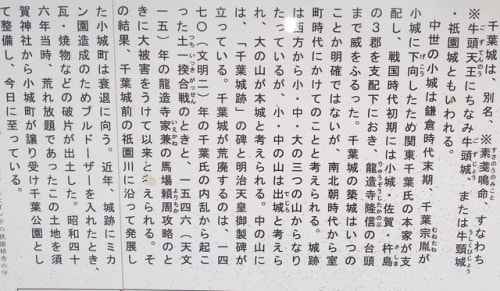 千葉城は、別名、※素戔嗚命、すなわち
※牛頭天王にちなみ牛頭城、または牛頸城
・祇園城ともいわれる。
中世の小城は鎌倉時代末期、千葉宗胤が
小城に下向したため関東千葉氏の本家が支
配し、戦国時代初期には小城・佐賀・杵島
の３郡を支配下におき、龍造寺隆信の台頭
まで威をふるった。千葉城の築城はいつの
ことか明確ではないが、南北朝時代から室
町時代にかけてのことと考えられる。城跡
は西方から小・中・大の三つの山からなり
たっているが、小・中の山は出城と考えら
れ、大の山が本城と考えられる。中の山に
は、「千葉城跡」の碑と明治天皇御製碑が
立っている。千葉城が荒廃するのは、一四
七〇（文明二）年の千葉氏の内乱から起こ
った土一揆合戦のときと、一五四六（天文
一五）年の龍造寺家兼の馬場頼周攻略のと
きに大被害をうけて以来と考えられる。そ
の結果、千葉城前の祇園川に沿って発展し
た小城町は衰退に向う。近年、城跡にミカ
ン園造成のためブルドーザーを入れたとき、
瓦・焼物などの破片が出土した。昭和四十
六年当時、荒れ放題であったこの土地を須
賀神社から小城町が譲り受け千葉公園とし
て整備し、今日に至っている。